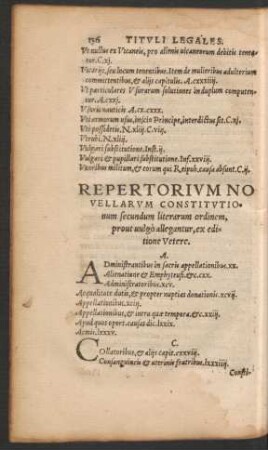 156 TITVLI LEGALES.
Vt nullus ex Vicaneis, pro alienis vicanorum debitis teneatur.C.xj.
Vicarijs, seu locum tenentibus. Item de mulieribus adulterium
committentibus, & alijs capitulis. A.cxxxiiij.
Vt particulares Vsurarum solutiones in duplum computentur.
Vsuris nauticis A.cx.cxxx.
Vti armorum usus, inscio Principe, interdictus sit. C.xj.
Vti possidetis, N.xliij.C.viij.
Vulgari substitutione. Inst.ij.
Vulgari & pupillari substitutione. Inf.xxviij.
Vxoribus militum, & eorum qui Reipub. causa absunt. C.ij.
REPERTORIVM NO
VELLARVM CONSTITVTIO-
num secundum literarum ordinem,
prout uulgò allegantur, ex edi-
tione Vetere.
A.
ADministrantibus in sacris appellationibus.xx.
Alienatione & Emphyteusi.&c.cxx.
Administratoribus.xcv.
Aequalitate dotis, & propter nuptias donationis.xcvij.
Appellationibus.xxiij.
Appellationibus, & intra quæ tempora.&c.xxiij.
Apud quos opor. causas dic.lxxix.
Armis.lxxxv.
C.
COllatoribus, & alijs capit.cxxviij.
Consanguineis & uterinis fratribus.lxxxiiij.
Consti-